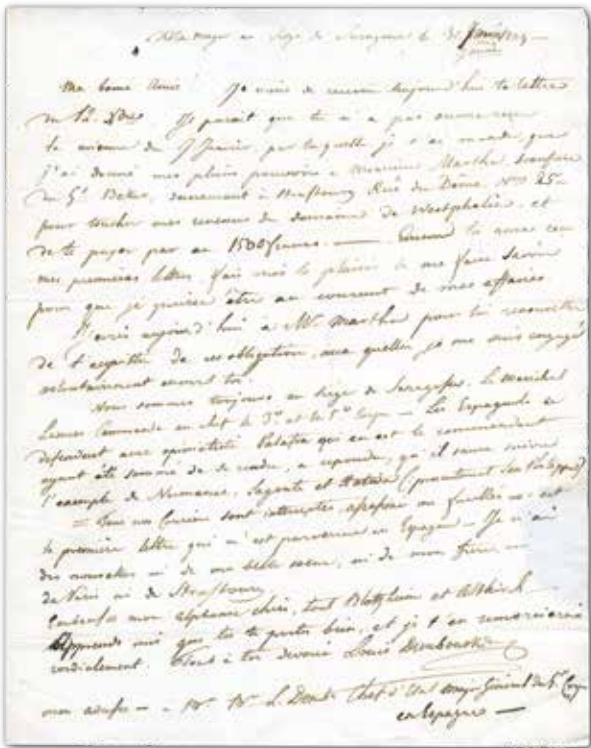 au Siège de Saragosse le 31 Janvier
Ma bonne Amie ! Je viens de recevoir aujourd'hui ta lettre
du 12 Il parait que tu n'a pas encore reçu
la mienne du 7 Janvier, par laquelle je t'ai mandé que
j'ai donné mes pleins pouvoirs à Monsieur Marthe,
du Gl. demeurant à Strasbourg Rue du Dôme, No 25
pour toucher mes revenus du domaine de Westphalie, et
de te payer par an 1500 francs. — tu auras reçu
mes premières lettres, fais moi le plaisir de me faire savoir
pour que je puisse être au courant de mes affaires
J'écris aujourd'hui à Mr. Marthe pour lui
de s'acquitter de ces obligations, aux quelles je me suis engagé
volontairement envers toi.
Nous sommes toujours au Siège de Saragosse, le Maréchal
Lannes Commande en chef le 3e et le 5e Corps — Les Espagnols se
défendent avec opiniatreté Palafox qui en est le commandant
ayant été sommé de se rendre, a repondu, qu'il saura suivre
l'exemple de Numance, Sagonte et
= Tous nos Couriers sont interceptés, ou fusillés
la première lettre qui m'est parvenue en Espagne — Je n'ai
des nouvelles ni de ma belle soeur, ni de mon frère,
de Paris ni de Strasbourg
mon Alphonse chéri, tout Blotzheim et Altkirch
Apprends moi que tu te porte bien, et je t'en remercierai
cordialement. Tout à toi devoué Louis Dembowski
mon adresse — à Mr. Mr. L. Chef d'Etat Major Général du 5e Corps
en Espagne —